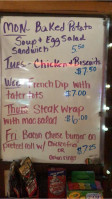 MON- Baked Potato
Soup + Egg Salad
Sandwich 5.50
Tues- Chicken + Biscuits
$7.50
Wed French Dip with
tator tots $7.00
Thurs Steak wrap
with mac salad $6.00
Fri Bacon cheese burger on
pretzel roll w/ $7.25